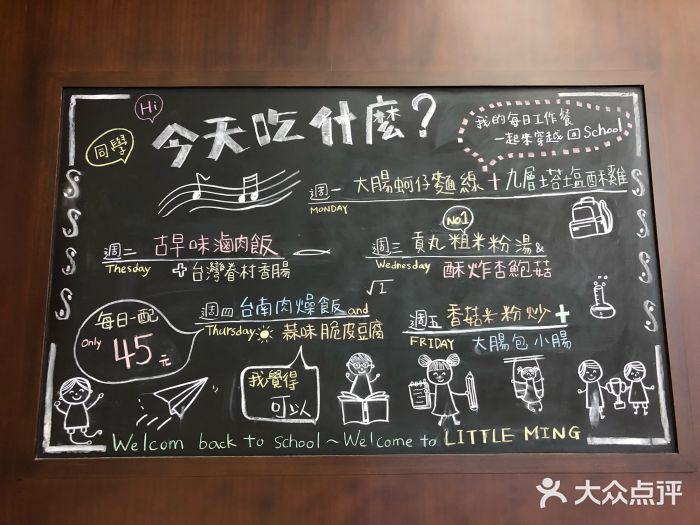 Hi
同學
今天吃什麼?
我的每日工作餐
一起來穿越回School
週一 大腸蚵仔麵線+九層塔塩酥雞
MONDAY
週二 古早味滷肉飯
Thesday +台灣眷村香腸
NO.1
週三 貢丸粗米粉湯&
Wednesday 酥炸杏鮑菇
√2
每日一配
Only 45元
週四 台南肉燥飯and
Thursday 蒜味脆皮豆腐
週五 香菇米粉炒+
FRIDAY 大腸包小腸
我覺得
可以
Welcom back to school~Welcome to LITTLE MING
大众点评